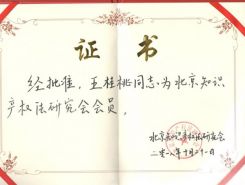 证书
经批准，王桂桃同志为北京知识
产权法研究会会员。
北京知识产权法研究会
二零一八年十月二十一日